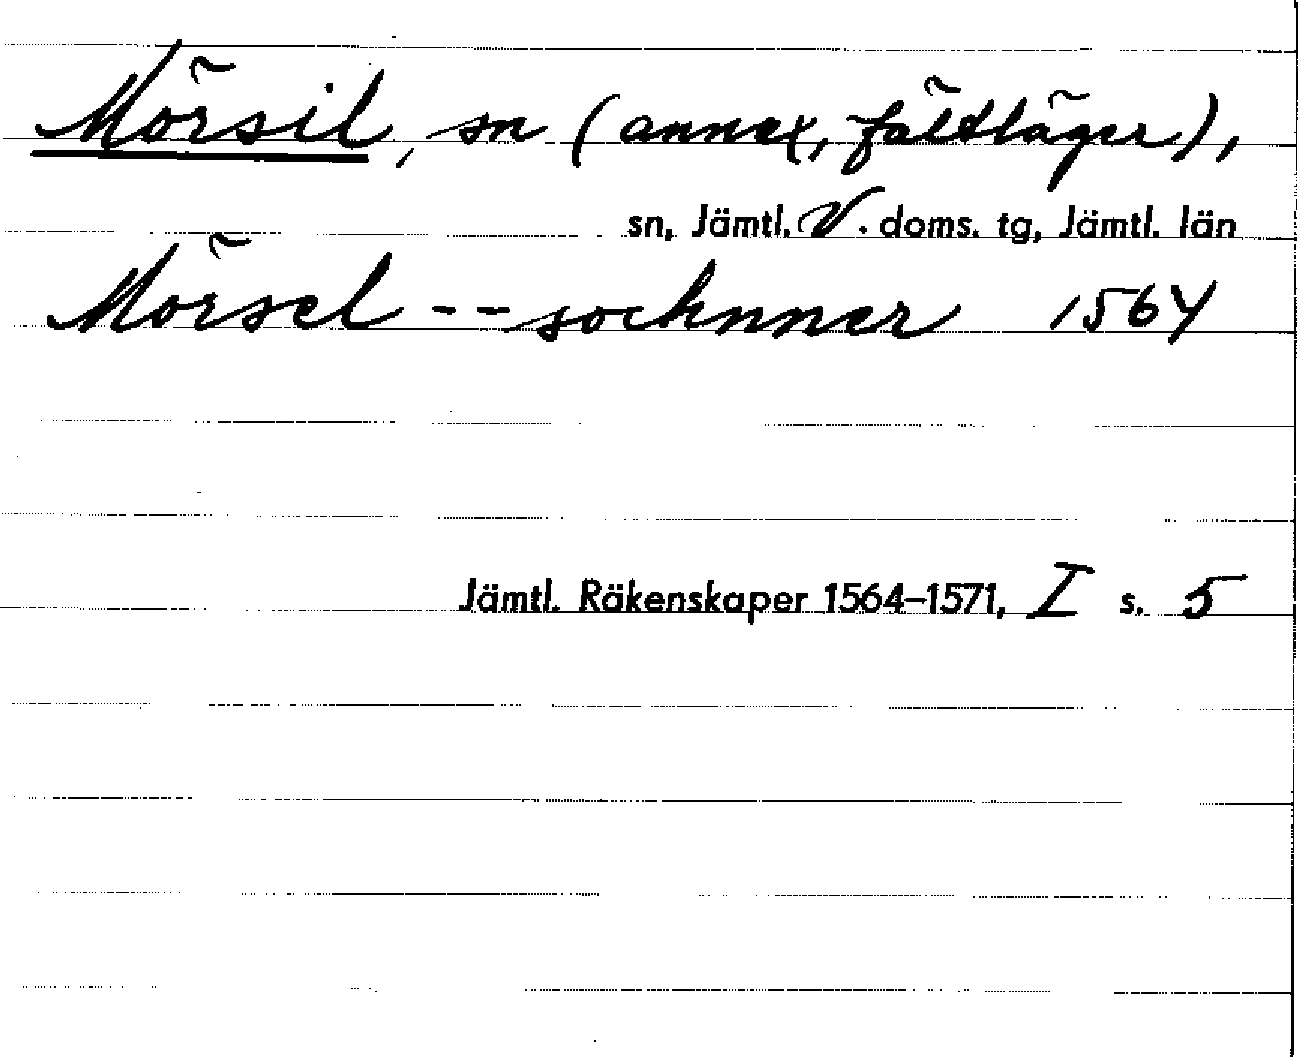 Mörsil, sn (annex, fältläger),
sn, Jämtl. V. doms. tg, Jämtl. län
Mörsel -- sochnner 1564
Jämtl. Räkenskaper 1564–1571, I s. 5